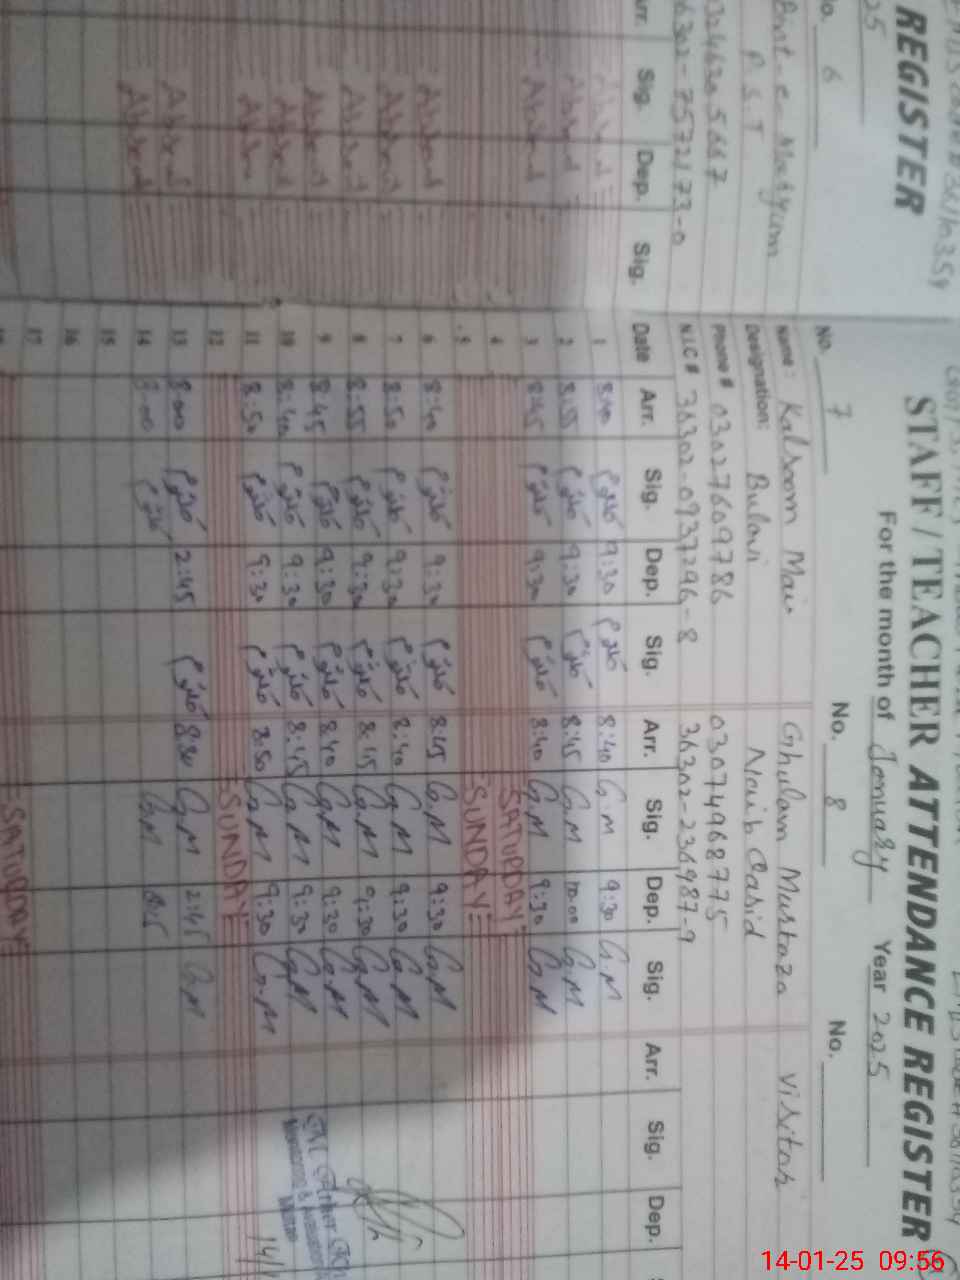 REGISTER
No. 6
P.S.T
Arr. Sig. Dep. Sig.
Absent
Absent
Absent
Absent
Absent
Absent
Absent
Absent
Absent
Absent
Absent
STAFF / TEACHER ATTENDANCE REGISTER
For the month of January Year 2025
No. 7 No. 8 No.
Name: Kalsoom Mai Ghulam Murtaza Visitor
Designation: Bulawi Naib Qasid
Phone # 03027609786 03074968775
N.I.C # 36302-0937296-8 36302-236987-9
Date Arr. Sig. Dep. Sig. Arr. Sig. Dep. Sig. Arr. Sig. Dep.
1 8:40 کلثوم 9:30 کلثوم 8:40 G.M 9:30 G.M
2 8:55 کلثوم 9:30 کلثوم 8:45 G.M 10:00 G.M
3 8:45 کلثوم 9:30 کلثوم 8:40 G.M 9:30 G.M
4 SATURDAY
5 SUNDAY
6 8:40 کلثوم 9:30 کلثوم 8:45 G.M 9:30 G.M
7 8:50 کلثوم 9:30 کلثوم 8:40 G.M 9:30 G.M
8 8:55 کلثوم 9:30 کلثوم 8:45 G.M 9:30 G.M
9 8:45 کلثوم 9:30 کلثوم 8:40 G.M 9:30 G.M
10 8:40 کلثوم 9:30 کلثوم 8:45 G.M 9:30 G.M
11 8:50 کلثوم 9:30 کلثوم 8:50 G.M 9:30 G.M
12 SUNDAY
13 8:00 کلثوم 2:45 کلثوم 8:30 G.M 2:45 G.M
14 8:00 کلثوم G.M
15
16
17
SATURDAY
Monitoring &
14/1
14-01-25 09:56